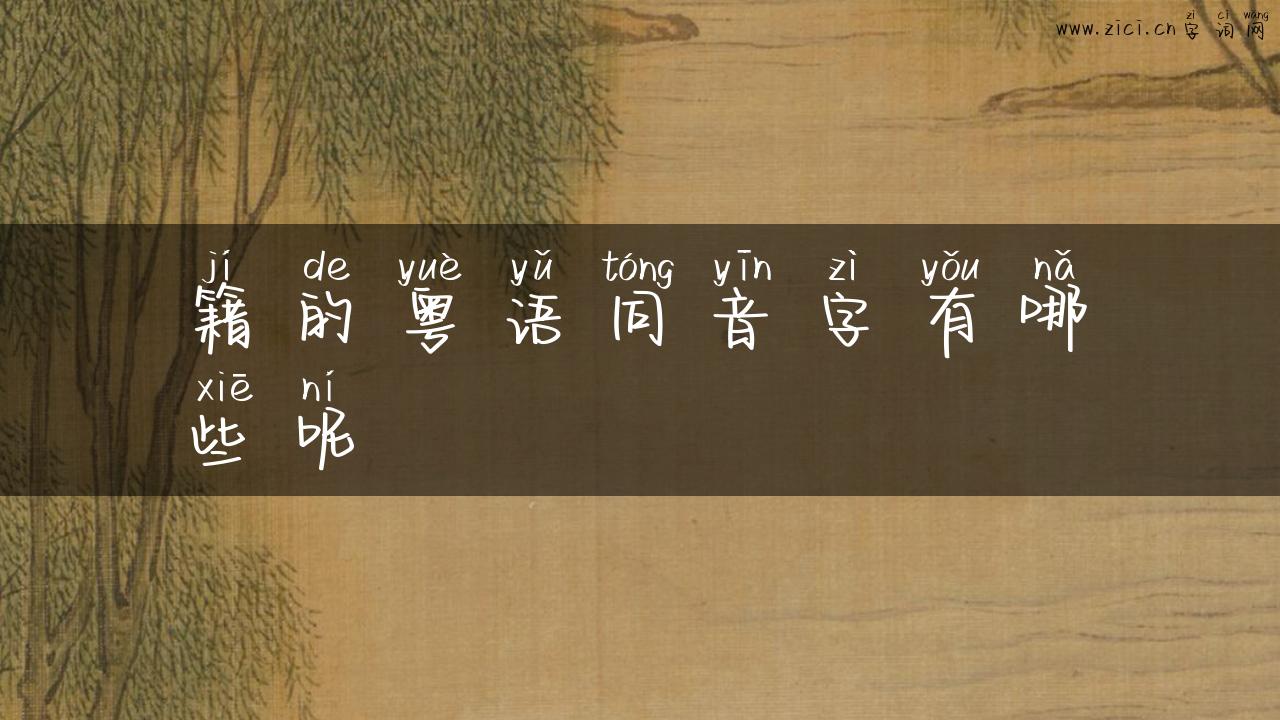 zì cí wǎng
www.zici.cn 字 词 网
jí de yuè yǔ tóng yīn zì yǒu nǎ
籍 的 粤 语 同 音 字 有 哪
xiē ní
些 呢